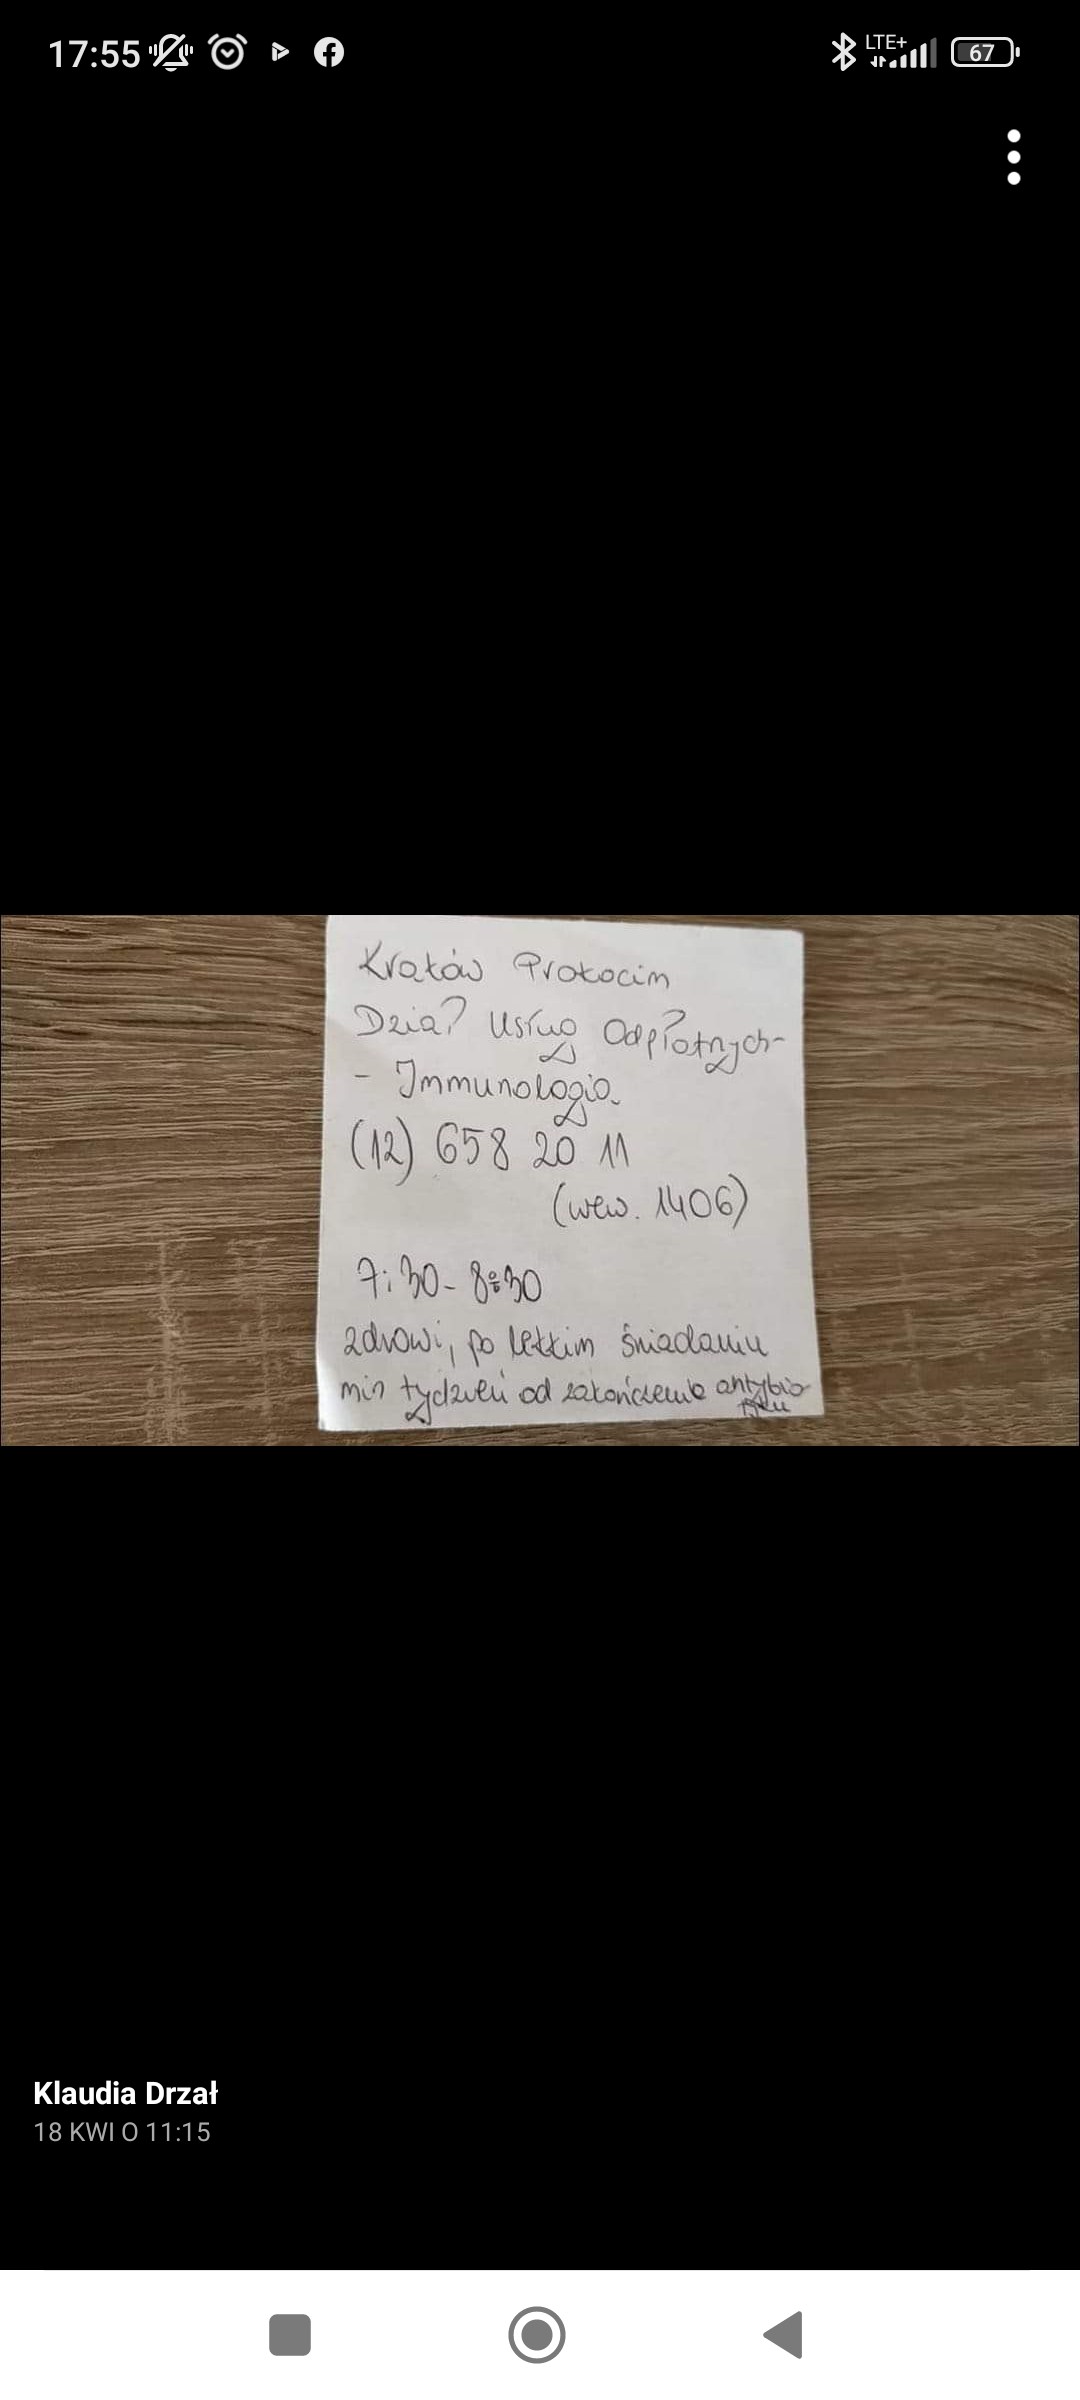 17:55
LTE+
67
Kraków Prokocim
Dział Usług Odpłatnych-
- Immunologia
(12) 658 20 11
(wew. 1406)
7:30 - 8:30
zdrowi, po lekkim śniadaniu
min tydzień od zakończenia antybio
tyku
Klaudia Drzał
18 KWI O 11:15